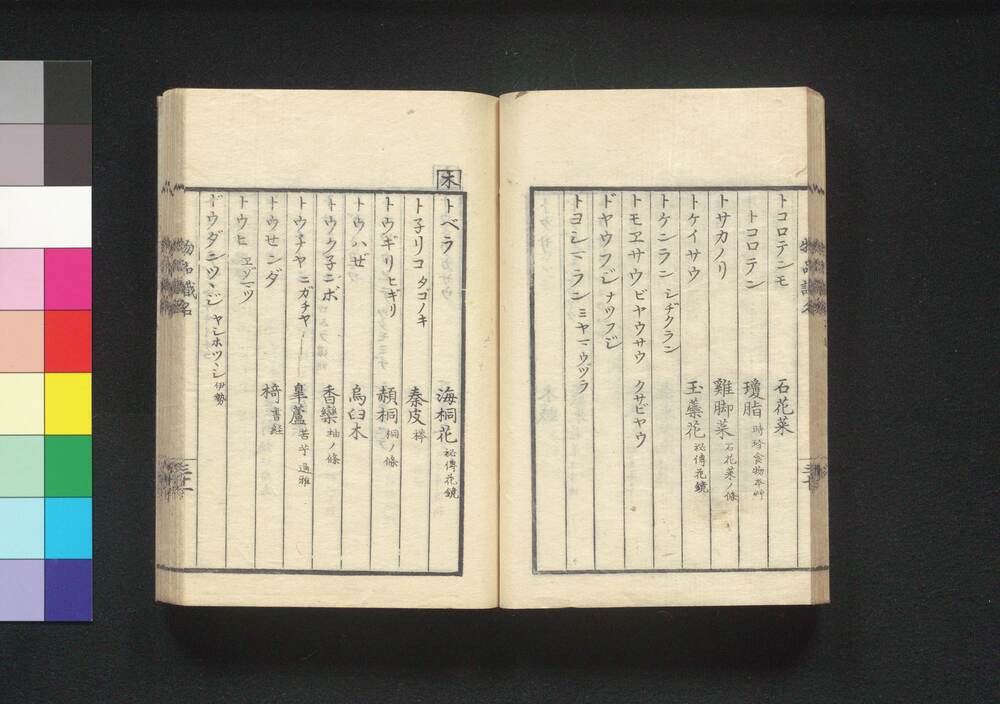 トコロテンモ 石花菜
トコロテン 瓊脂 時珍食物本艸
トサカノリ 雞脚菜 石花菜ノ條
トケイサウ 玉蘂花 祕傳花鏡
トケンラン シヂクラン
トモヱサウ ビヤウサウ クサビヤウ
ドヤウフジ ナツフジ
トヨシマラン ミヤマウヅラ
木
トベラ 海桐花 祕傳花鏡
ト子リコ タゴノキ 秦皮 梣
トウギリ ヒギリ 赬桐 桐ノ條
トウハゼ 烏臼木
トウク子ンボ 香欒 柚ノ條
トウチヤ ニガチヤ 皐蘆 苦䔑 通雅
トウセンダ 椅 書経
トウヒ ヱゾマツ
ドウダンツヽジ ヤシホツヽジ 伊勢
物品識名